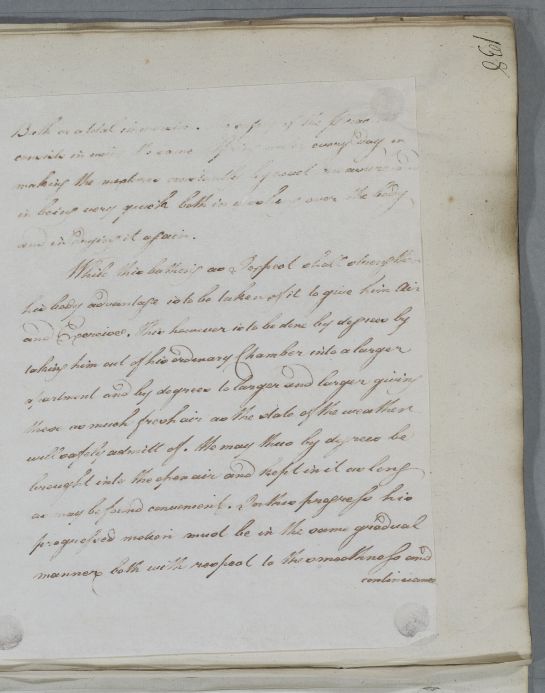 138
Both or a total immersion. of the
consists in using the same every day in
making the
in being very quick both in over the body
and in drying it again.
While this bathing as I expect shall strengthen
his body advantage is to be taken of it to give him Air
and Exercise. This however is to be done by degrees by
taking him out of his ordenary Chamber into a larger
apartment and by degrees to larger and larger giving
these as much fresh air as the state of the weather
will safely admitt of. He may thus by degrees be
brought into the open air and kept in it as long
as may be found convenient. In this progress his
motion must be in the same gradual
manner both with respect to the smoothness and
continuance